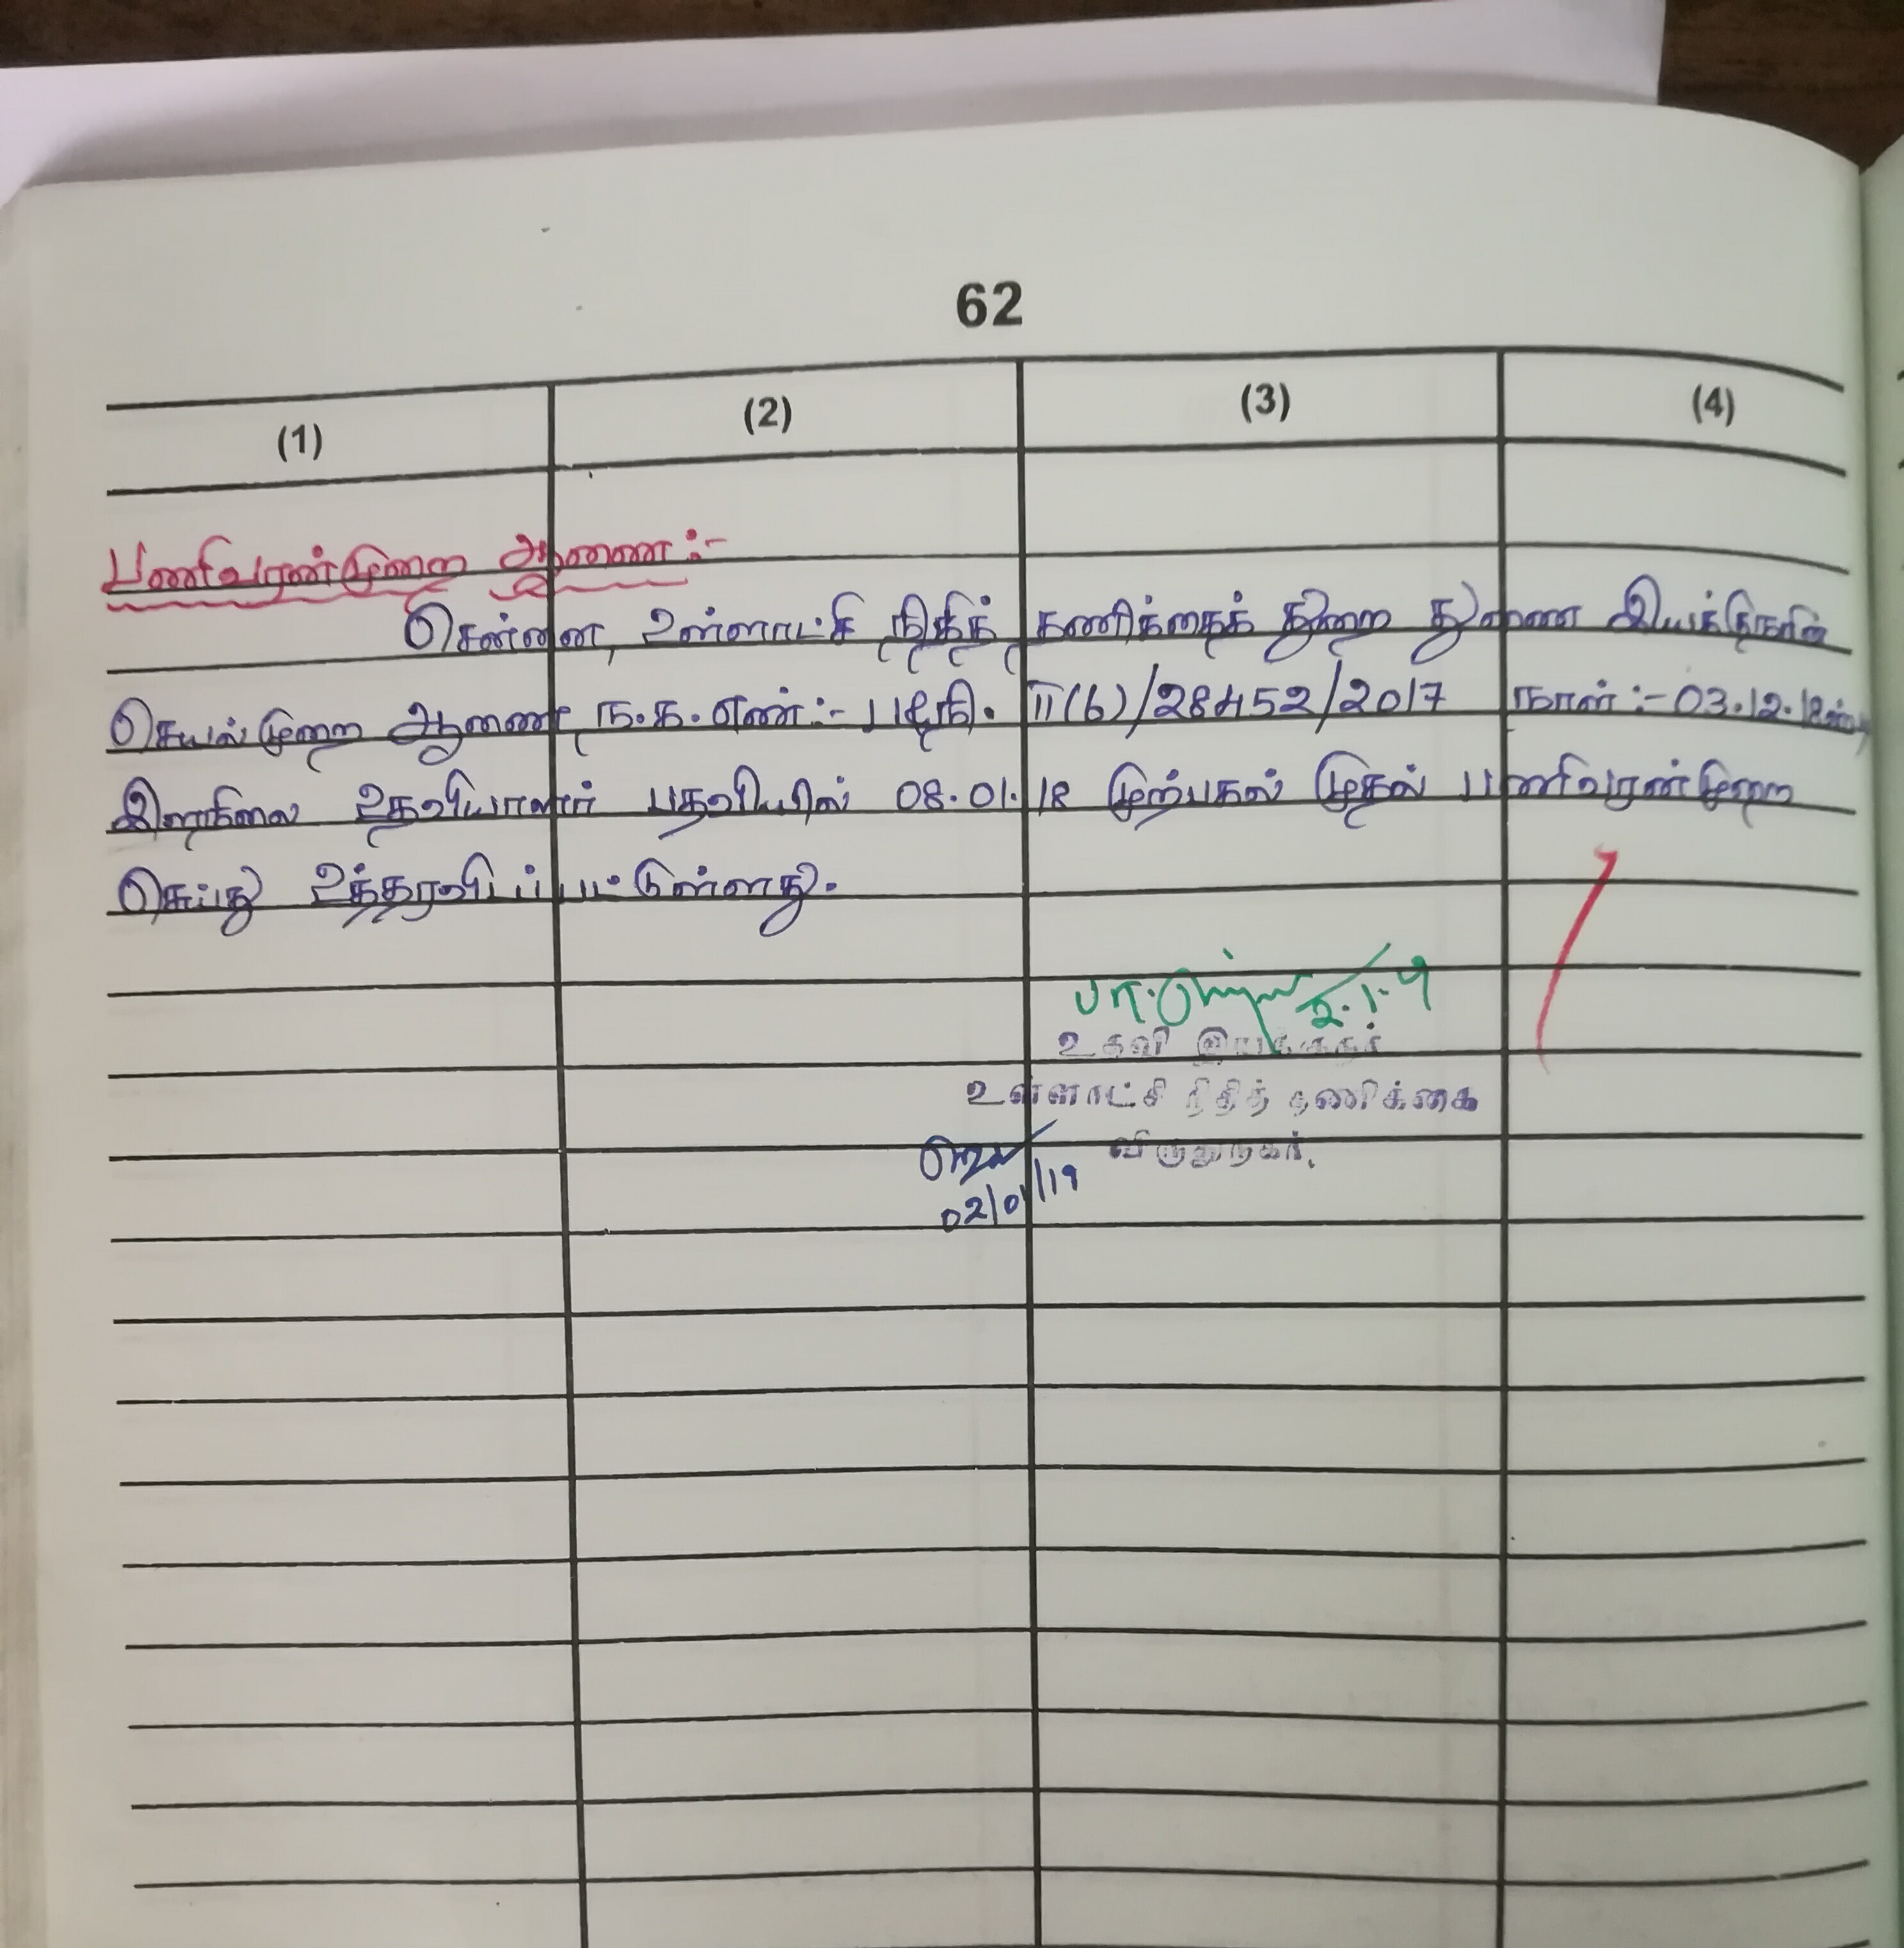 62
(1) (2) (3) (4)
பணிவரன்முறை ஆணை :-
சென்னை, உள்ளாட்சி நிதித் தணிக்கைத் துறை துணை இயக்குநரின்
செயல்முறை ஆணை ந.க.எண்:- பதநி. II(6)/28452/2017 நாள் :- 03.12.18ன்படி
இளநிலை உதவியாளர் பதவியில் 08.01.18 முற்பகல் முதல் பணிவரன்முறை
செய்து உத்தரவிடப்பட்டுள்ளது.
2.1.19
உதவி இயக்குநர்
உள்ளாட்சி நிதித் தணிக்கை
விருதுநகர்.
02/01/19